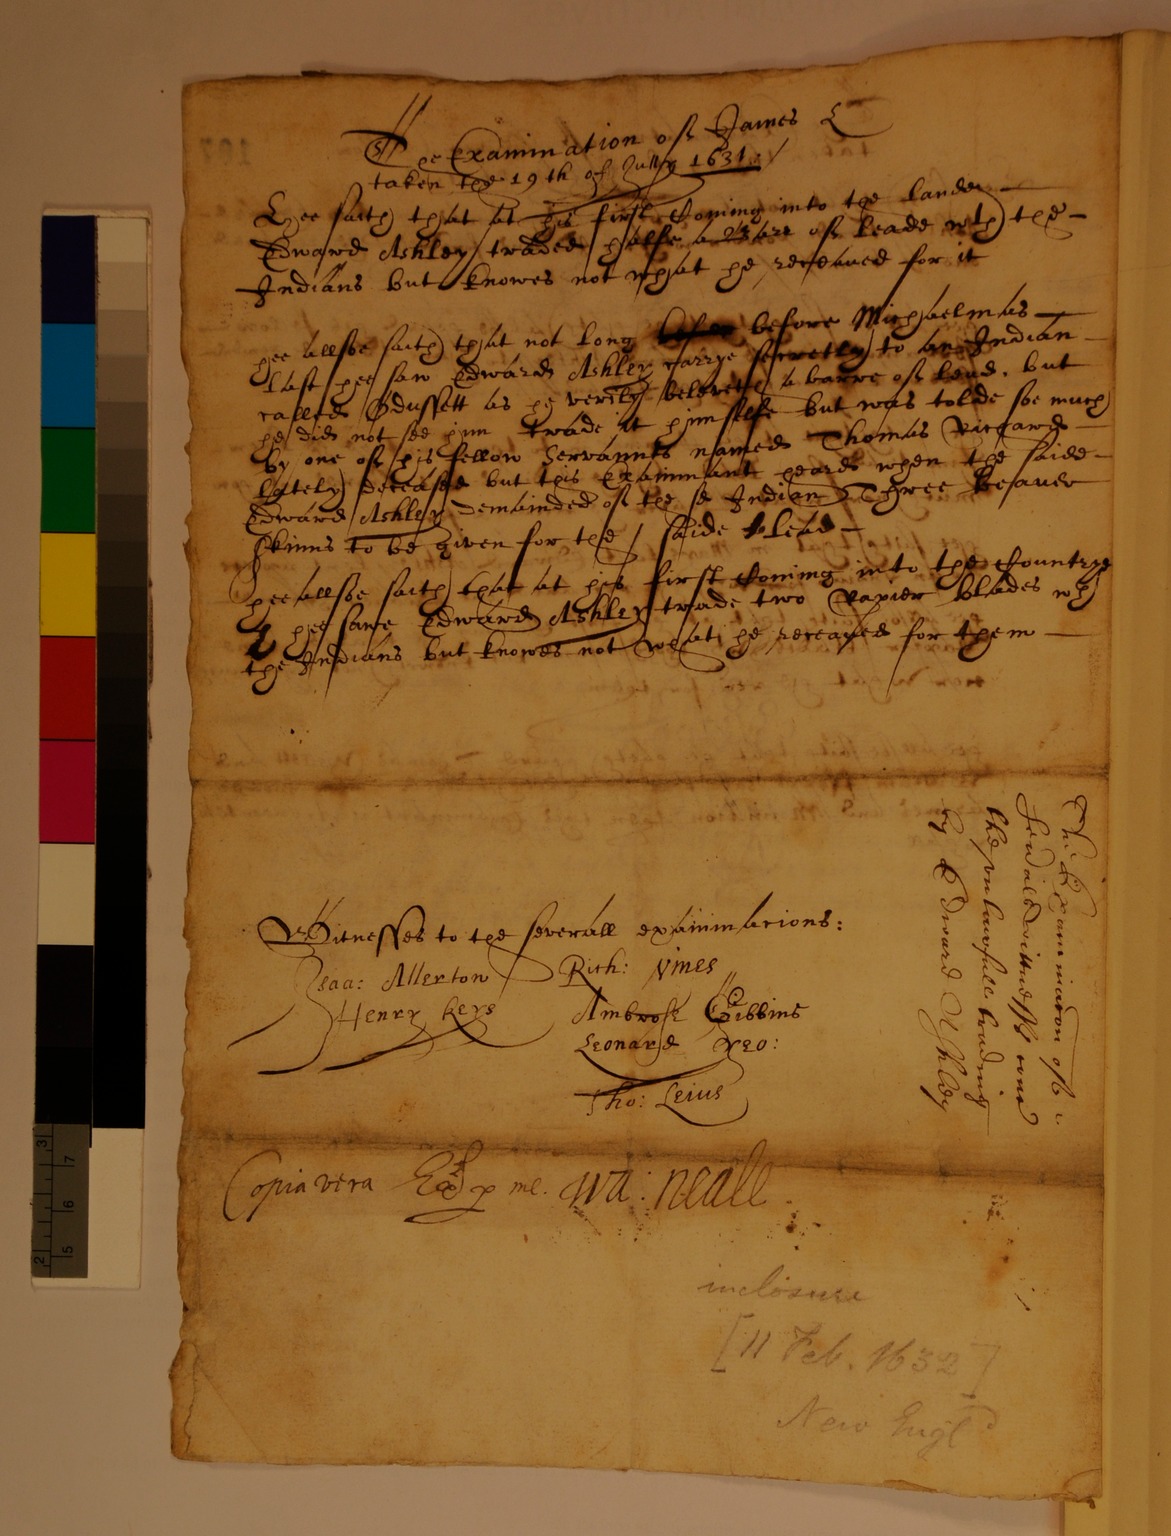 The Examination of James L
taken the 19th of Jully 1631
Hee saith that at his first Coming into the lande
Edward Ashley traded halfe a of leade wth the
Indians but knowes not what he receaued for it
hee allsoe saith that not long before Michaelmas
last hee saw Edward Ashley carrye secretly to an Indian
called as he verely beleveth a barre of lead. but
he did not see him trade it himselfe but was tolde soe much
by one of his fellow Servannts named Thomas Riccards
lately deceased but this Examinant heard when the saide
Edward Ashley demainded of the sd Indian Three beaver
skinns to be given for the saide lead
hee allsoe saith that at his first Coming into the Countrye
hee sawe Edward Ashley trade two Rapier blades wth
the Indians but knowes not what he receaved for them
Witnesses to the severall examinacions:
Isaa: Allerton Rich: Vines
Henry Keys Ambrose Gibbins
Leonard Yeo:
Tho: Leius
Copia vera Exd p me. Wa: Neale
The Examinacon of
sevall Wittnesses
the vnlawfull trading
by Edward Ashley
inclosure
[11 Feb. 1632]
New Engld